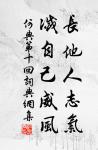 長他人志氣
滅自己威風
何典第十回詞典網集